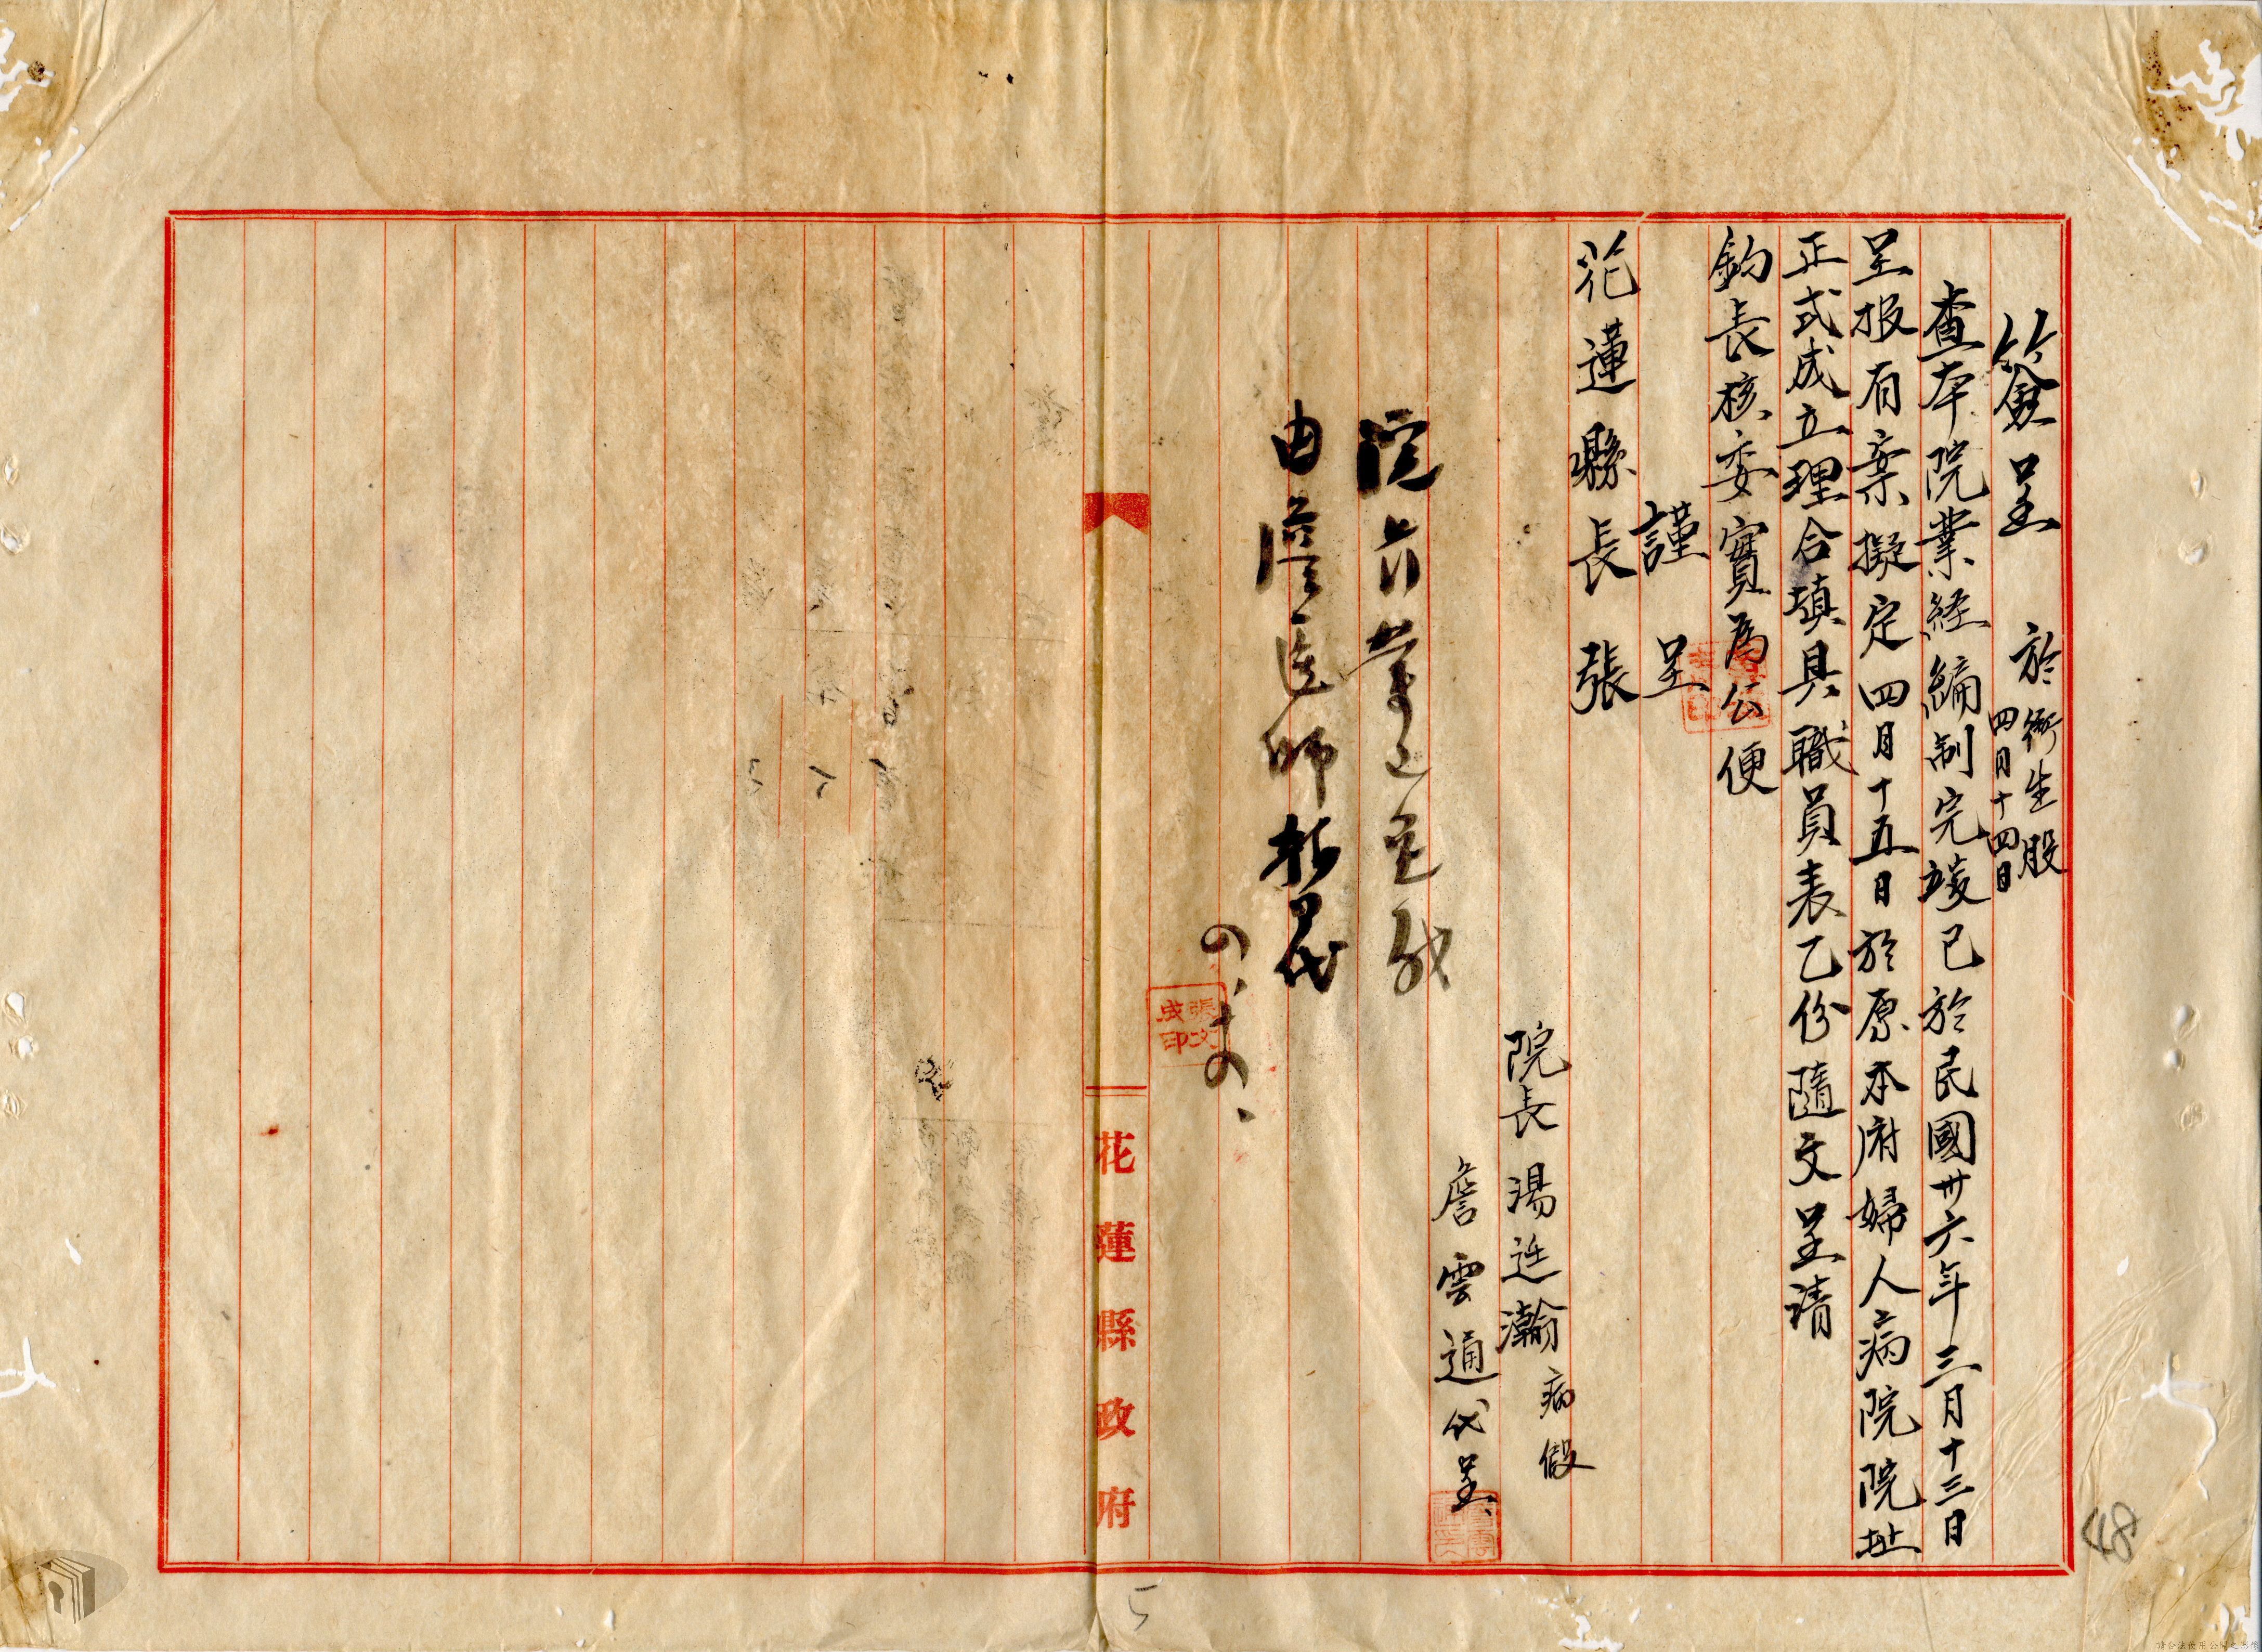 簽呈 於衛生股
四月十四日
查本院業経編制完竣已於民國卅六年三月十三日
呈报有案擬定四月十五日於原本府婦人病院院址
正式成立理合填具職員表乙份隨文呈请
鈞長核委實為公便
謹呈
花蓮縣長張
院長湯迋瀚病假
詹雲通代呈
由詹医師折代
の、十の、
張文成印
花蓮縣政府
48
5
請合法使用公開之影像